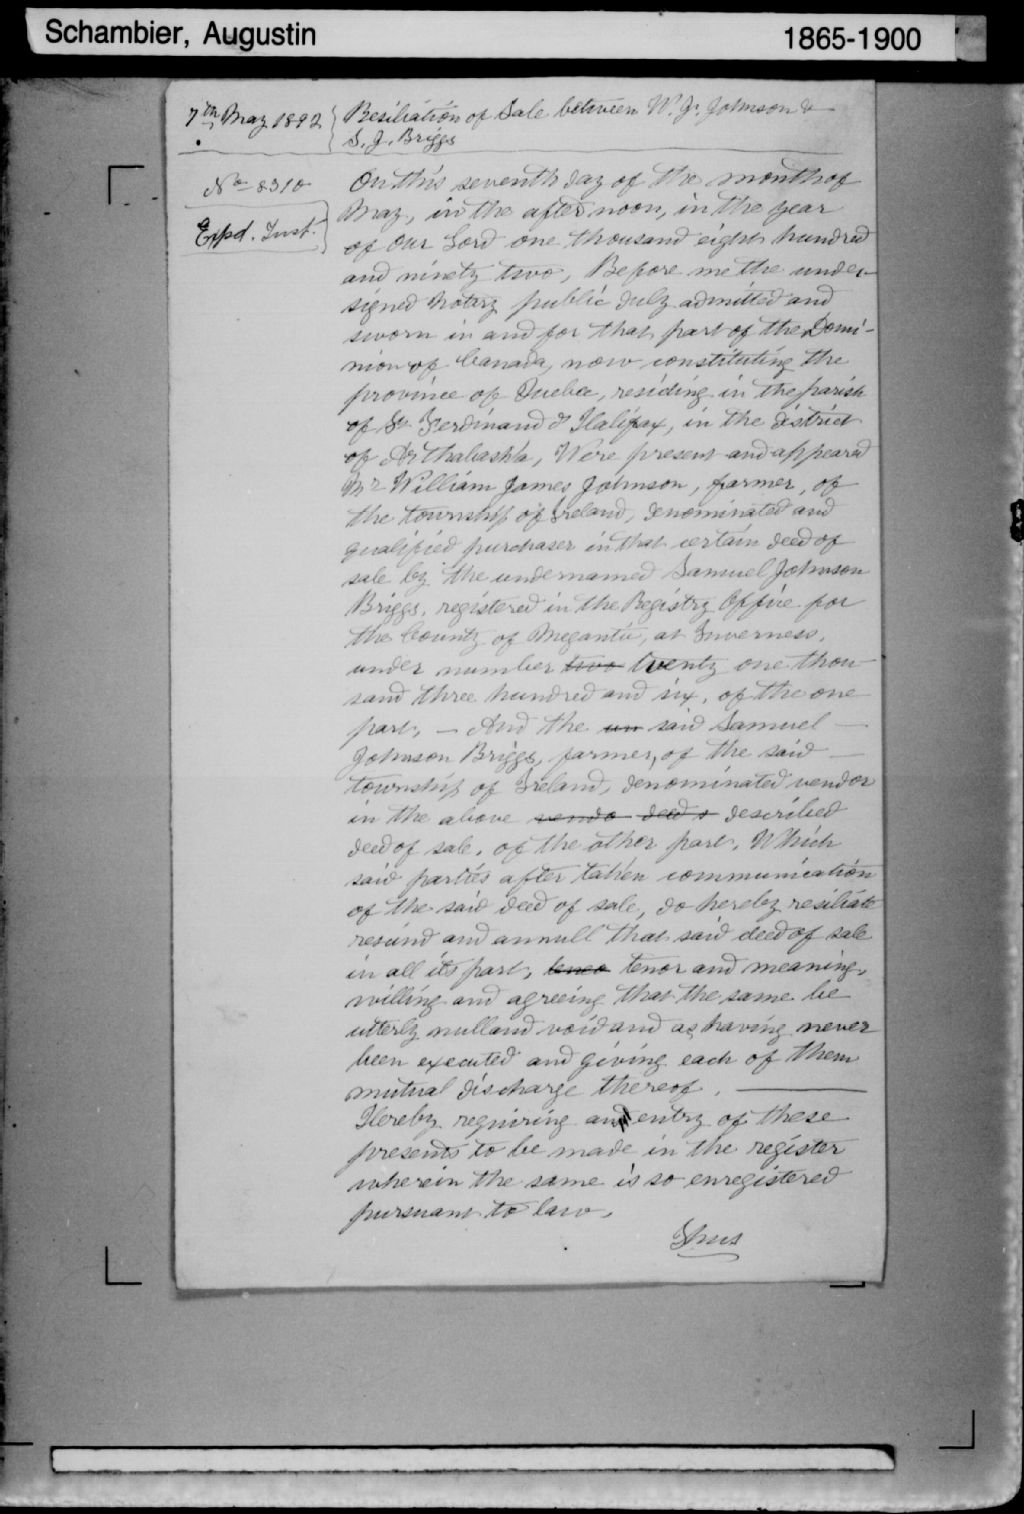 Schambier, Augustin 1865-1900
7th May 1892 Resiliation of Sale between W. J. Johnson &
S. J. Briggs
No 8310
Expd. Inst.
On this seventh day of the month of
May, in the afternoon, in the year
of Our Lord one thousand eight hundred
and ninety two, Before me the under-
signed Notary public duly admitted and
sworn in and for that part of the Domi-
nion of Canada, now constituting the
province of Quebec, residing in the parish
of St Ferdinand d'Halifax, in the district
of Arthabaska, Were present and appeared
Mr William James Johnson, farmer, of
the township of Ireland, denominated and
qualified purchaser in that certain deed of
sale by the undernamed Samuel Johnson
Briggs, registered in the Registry Office for
the County of Megantic, at Inverness,
under number two twenty one thou
sand three hundred and six, of the one
part, — And the un said Samuel —
Johnson Briggs, farmer, of the said —
township of Ireland, denominated vendor
in the above vendo deed s described
deed of sale, of the other part. Which
said parties after taken communication
of the said deed of sale, do hereby resiliate
rescind and annull that said deed of sale
in all its part, teneo tenor and meaning,
willing and agreeing that the same be
utterly null and void and as having never
been executed and giving each of them
mutual discharge thereof. —
Hereby requiring an entry of these
presents to be made in the register
wherein the same is so enregistered
pursuant to law.
Thus